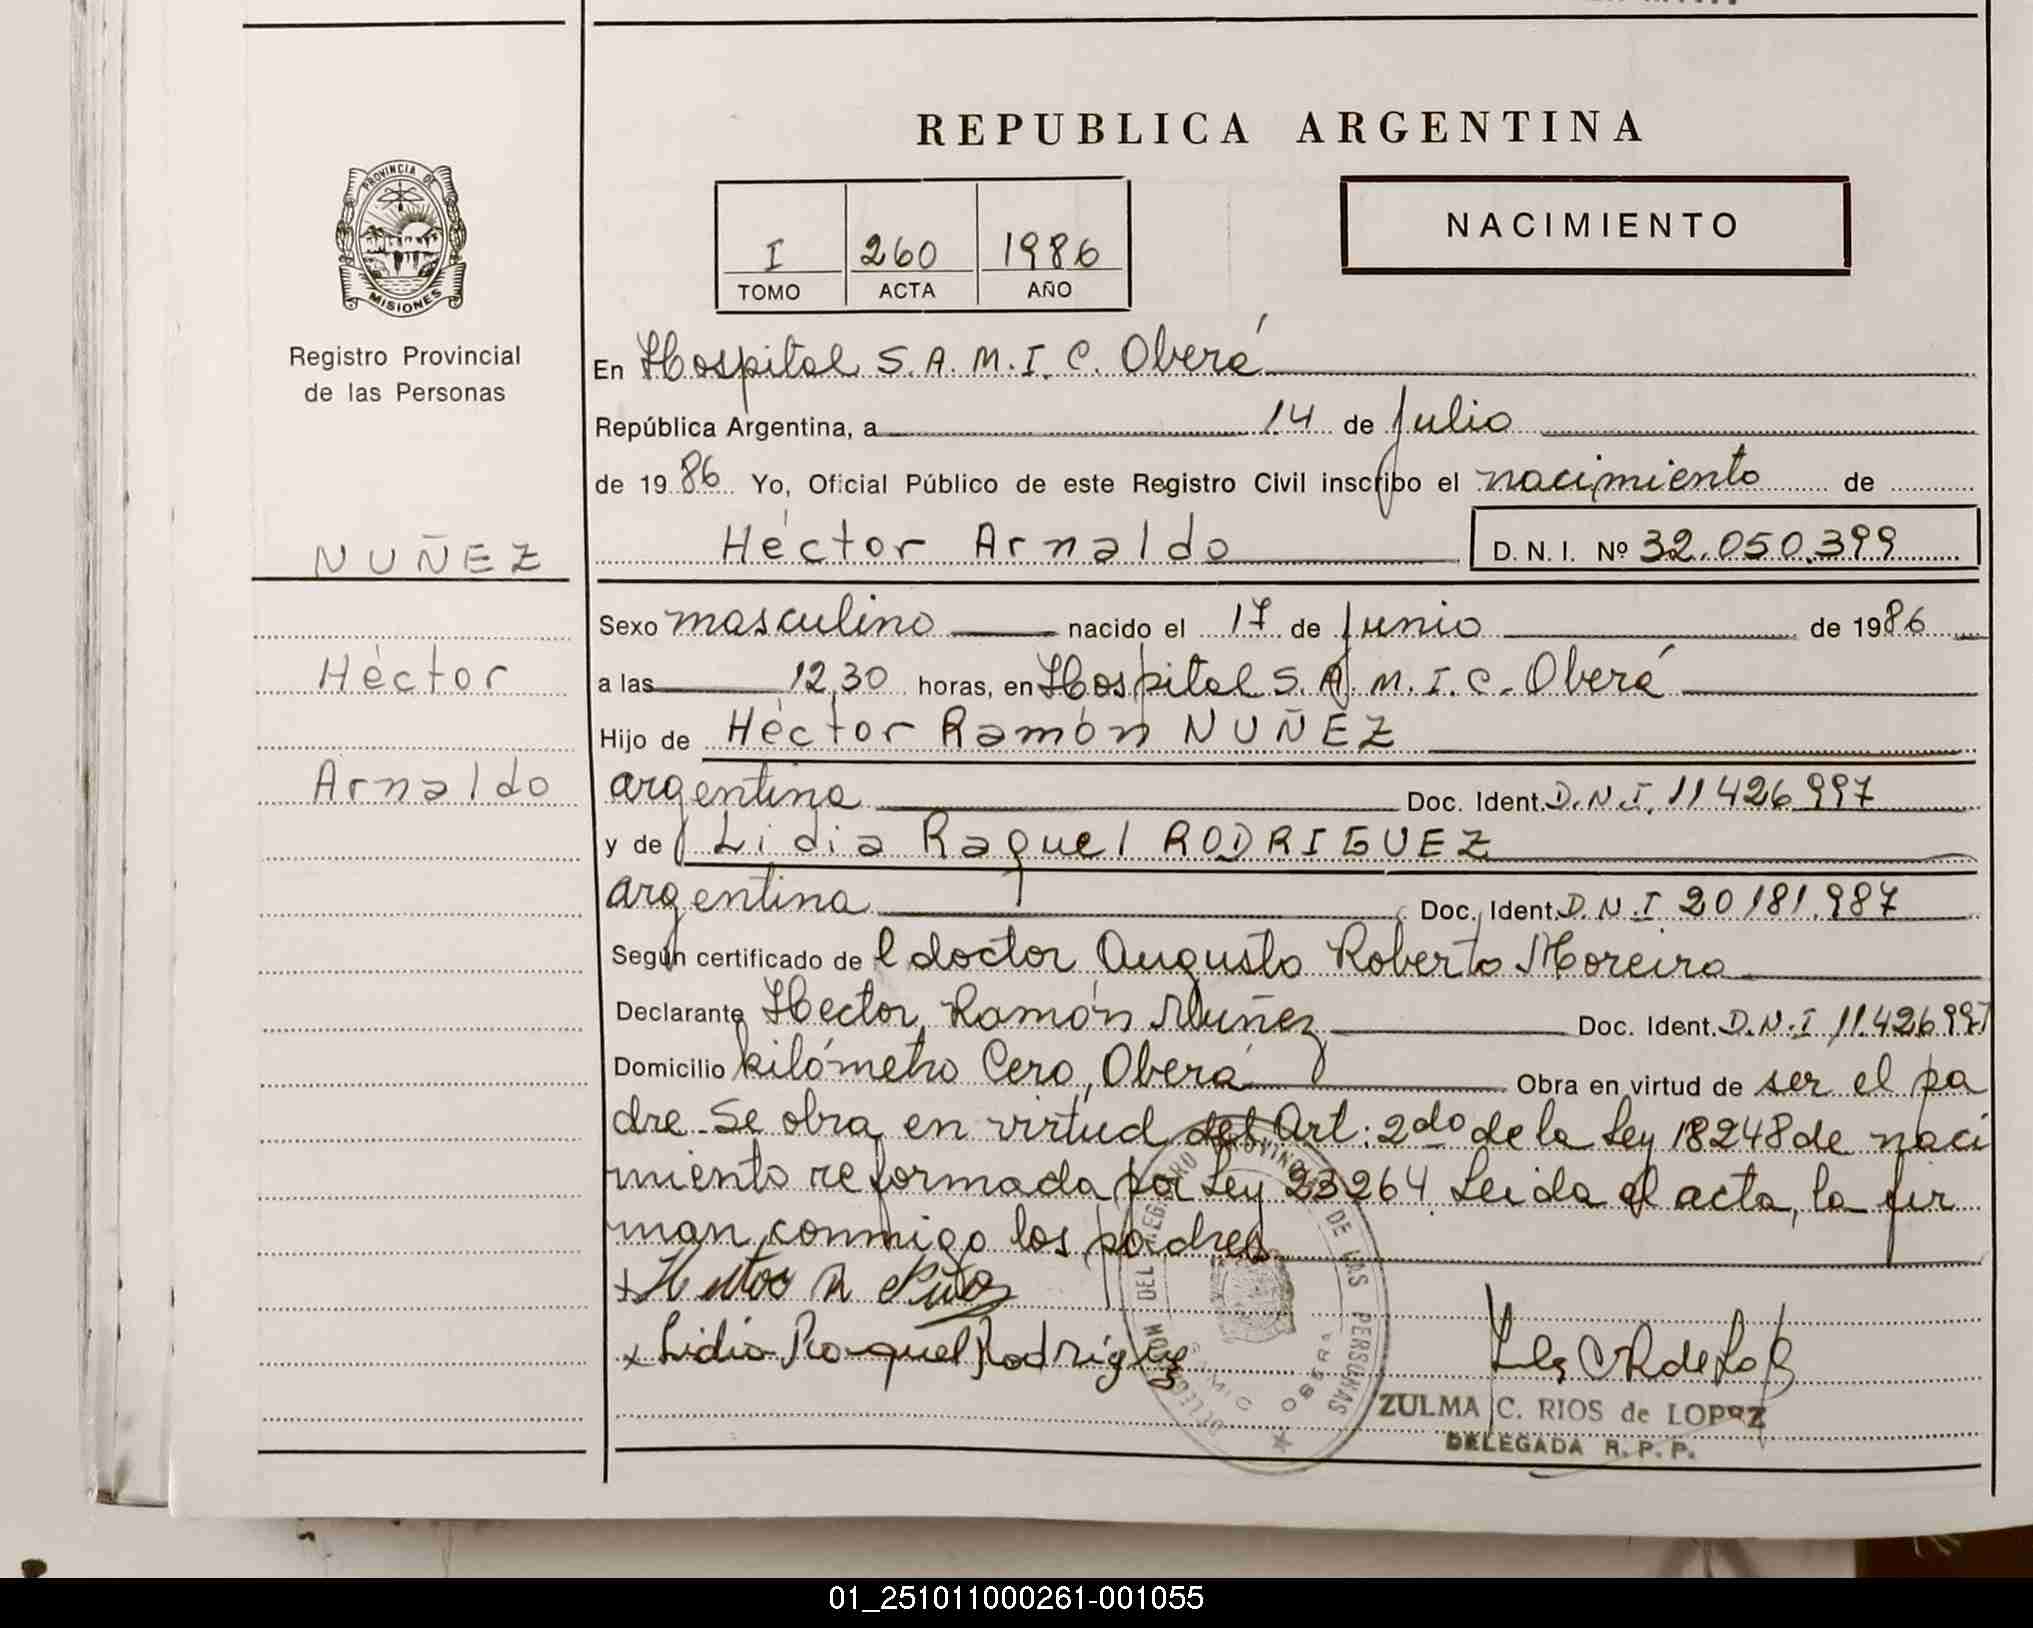 REPUBLICA ARGENTINA
PROVINCIA DE
MISIONES
Registro Provincial
de las Personas
NUÑEZ
Héctor
Arnaldo
I 260 1986
TOMO ACTA AÑO
NACIMIENTO
En Hospital S.A.M.I.C. Oberá
República Argentina, a 14 de Julio
de 1986 Yo, Oficial Público de este Registro Civil inscribo el nacimiento de
Héctor Arnaldo D. N. I. Nº 32.050.399
Sexo masculino nacido el 17 de Junio de 1986
a las 12,30 horas, en Hospital S.A.M.I.C. Oberá
Hijo de Héctor Ramón NUÑEZ
argentina Doc. Ident. D.N.I. 11426997
y de Lidia Raquel RODRIGUEZ
argentina Doc. Ident. D.N.I 20181.987
Según certificado de l doctor Augusto Roberto Moreira
Declarante Hector Ramón Nuñez Doc. Ident. D.N.I 11.426997
Domicilio kilómetro Cero, Oberá Obra en virtud de ser el pa
dre. Se obra en virtud del Art. 2do de la Ley 18248 de naci
miento reformada por Ley 23264 Leida el acta, la fir
man conmigo los padres
x Lidia Raquel Rodriguez
DEL REGISTRO PROVINCIAL DE LAS PERSONAS
OBERA
ZULMA C. RIOS de LOPEZ
DELEGADA R. P. P.
01_251011000261-001055